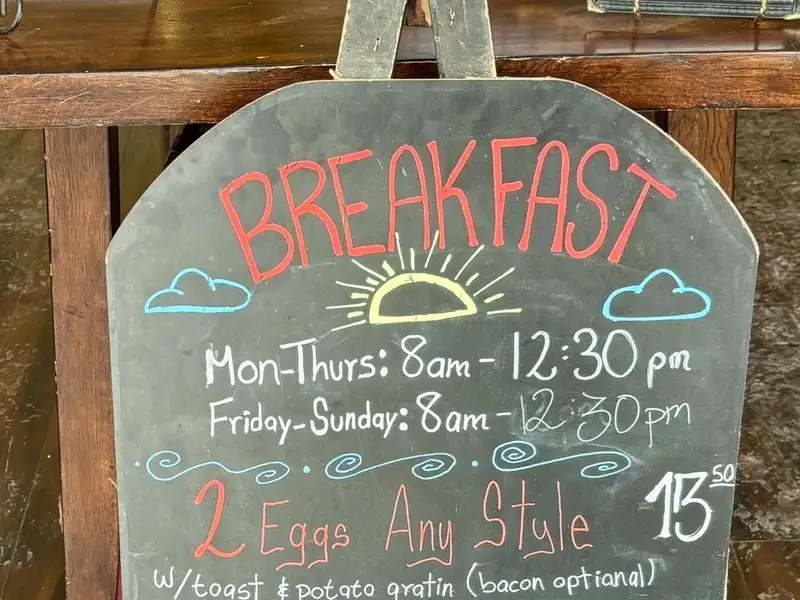 BREAKFAST
Mon-Thurs: 8am - 12:30 pm
Friday-Sunday: 8am - 12:30pm
2 Eggs Any Style 13 50
w/toast & potato gratin (bacon optianal)